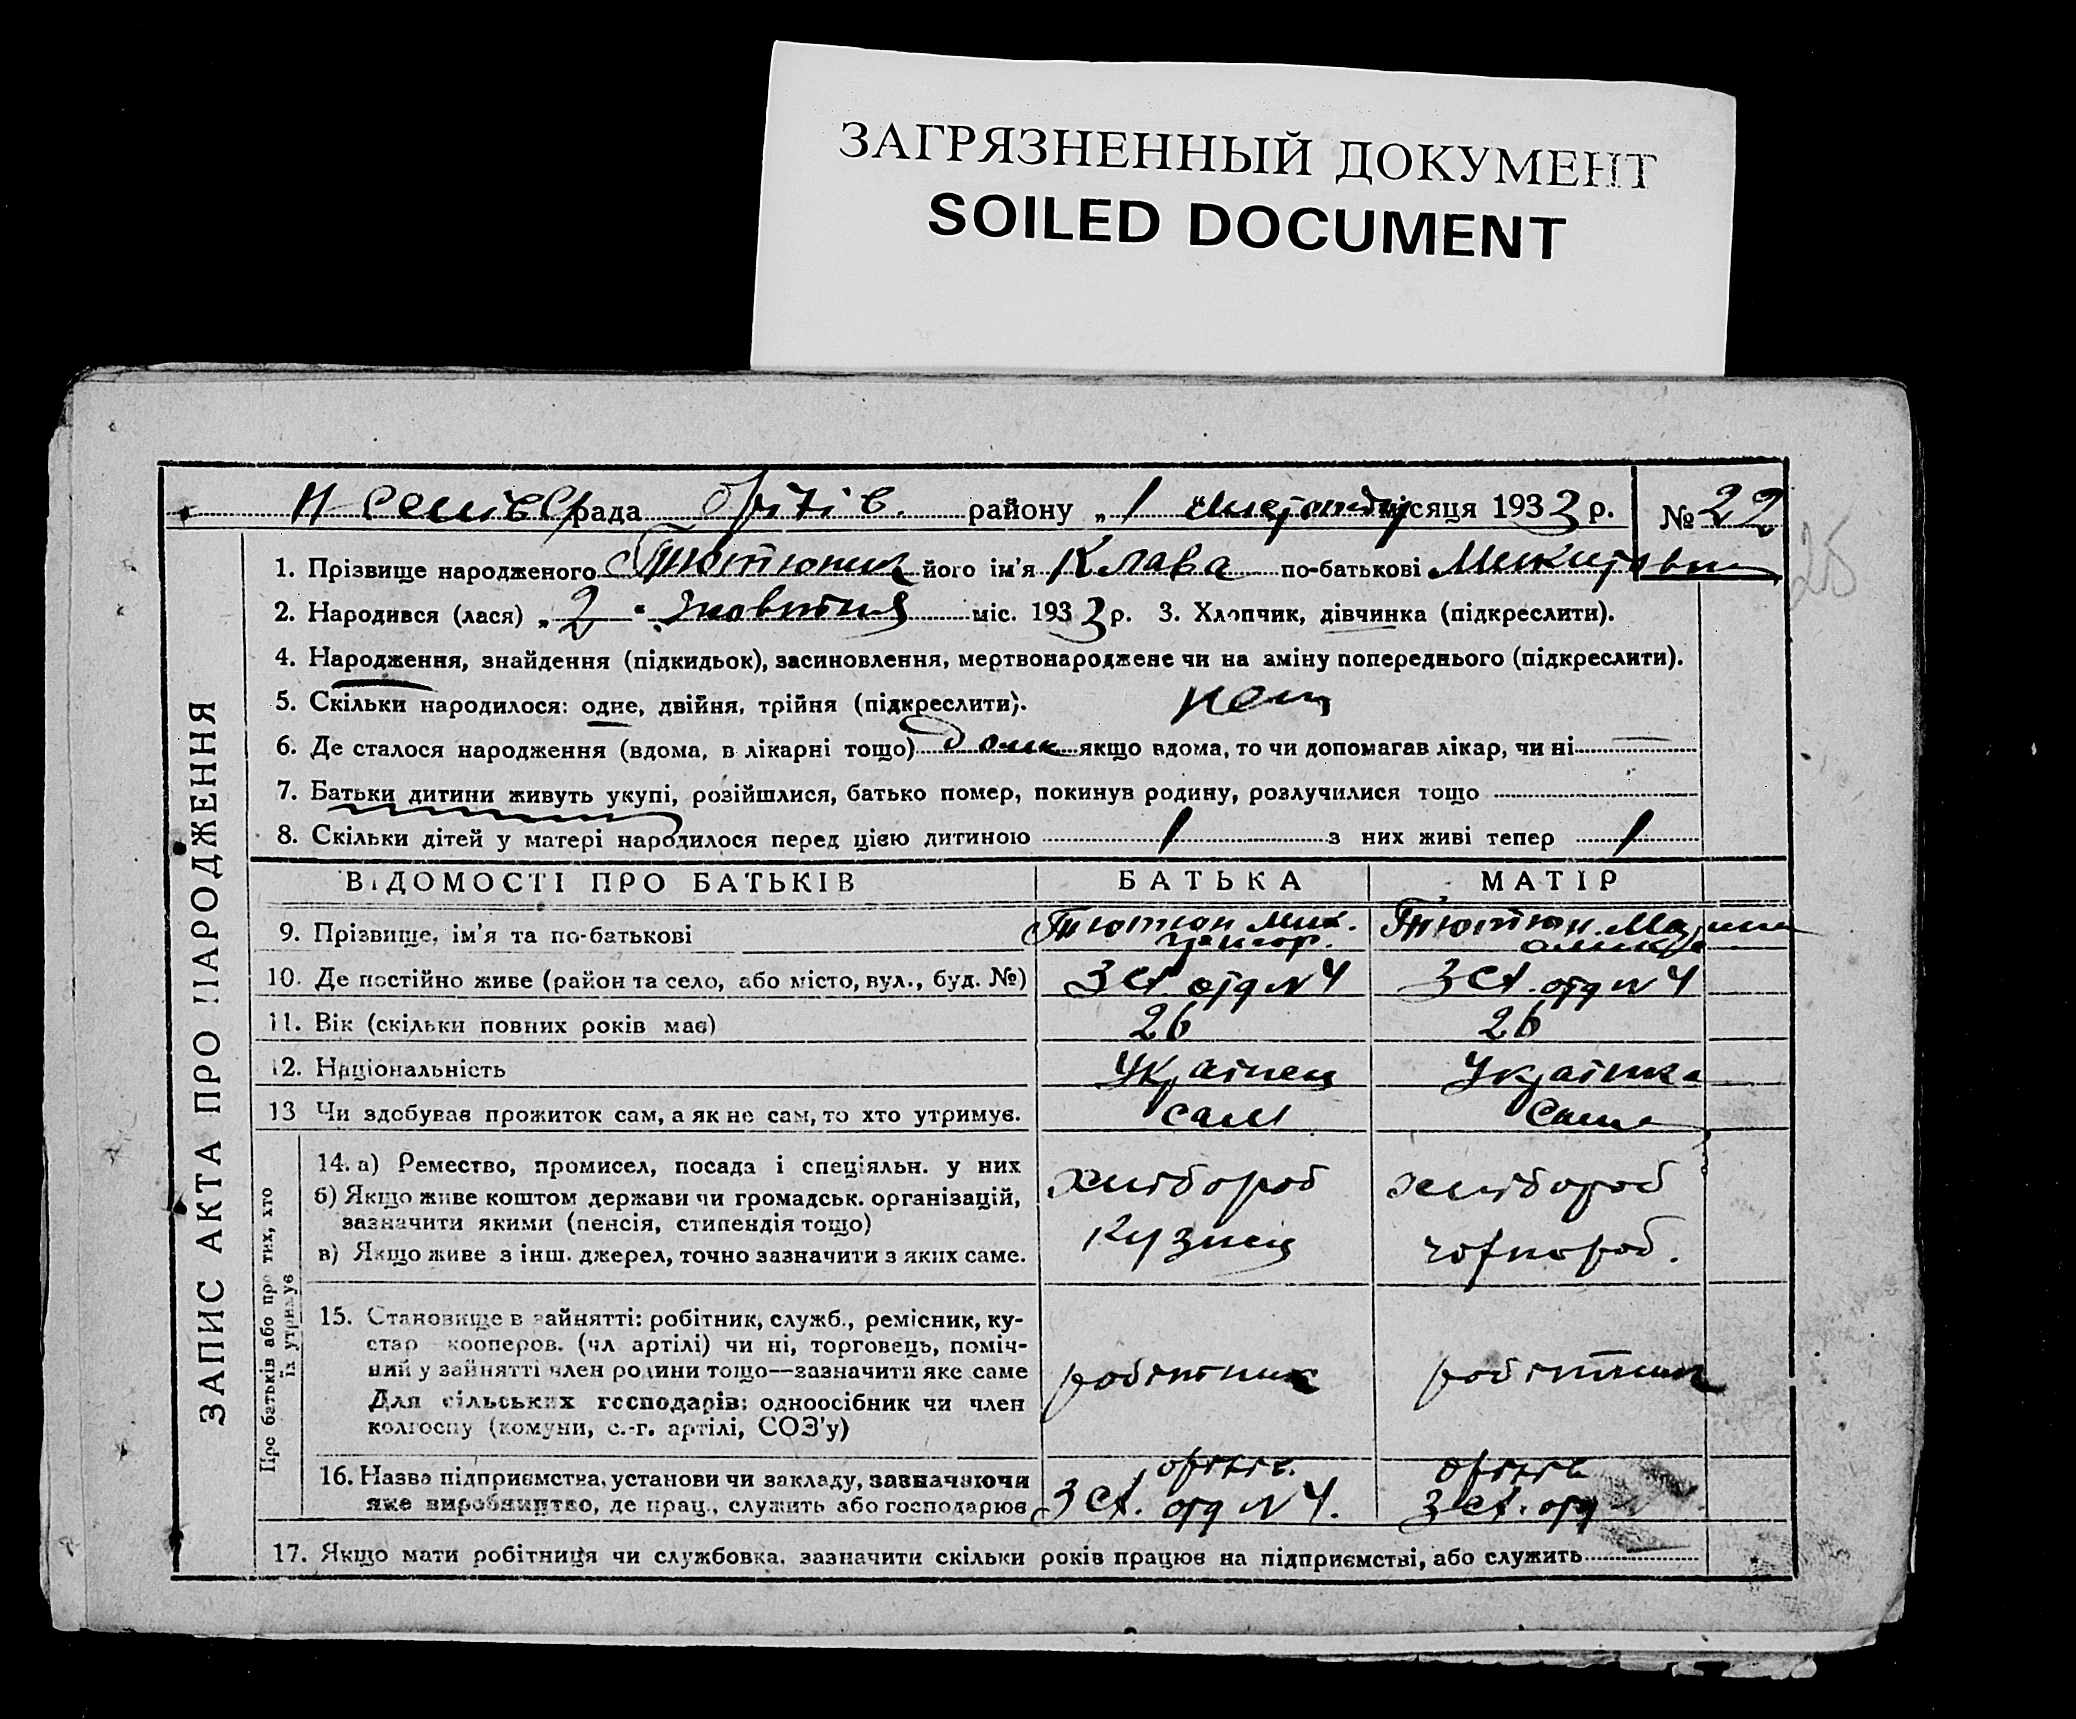 ЗАГРЯЗНЕННЫЙ ДОКУМЕНТ
SOILED DOCUMENT
рада району „ 1 " листопад місяця 1933 р. № 22
25
1. Прізвище народженого Тютюник його ім'я Клава по-батькові Микитовна
2. Народився (лася) „ 2 " жовтня міс. 1933 р. 3. Хлопчик, дівчинка (підкреслити).
4. Народження, знайдення (підкидьок), засиновлення, мертвонароджене чи на зміну попереднього (підкреслити).
5. Скільки народилося: одне, двійня, трійня (підкреслити).
6. Де сталося народження (вдома, в лікарні тощо) дома якщо вдома, то чи допомагав лікар, чи ні
7. Батьки дитини живуть укупі, розійшлися, батько помер, покинув родину, розлучилися тощо
8. Скільки дітей у матері народилося перед цією дитиною 1 з них живі тепер 1
ЗАПИС АКТА ПРО НАРОДЖЕННЯ
ВІДОМОСТІ ПРО БАТЬКІВ БАТЬКА МАТІР
9. Прізвище, ім'я та по-батькові Тютюн Мик. Григор. Тютюн.
10. Де постійно живе (район та село, або місто, вул., буд. №) 3 ст отд N 4 3 ст. отд N 4
11. Вік (скільки повних років має) 26 26
12. Національність Українец Українка
13 Чи здобував прожиток сам, а як не сам, то хто утримує. сам сама
Про батьків або про тих, хто
їх утримує
14. а) Ремество, промисел, посада і спеціяльн. у них хлібороб хлібороб
б) Якщо живе коштом держави чи громадськ. організацій,
зазначити якими (пенсія, стипендія тощо) Кузнец чорнороб.
в) Якщо живе з інш. джерел, точно зазначити з яких саме.
15. Становище в зайнятті: робітник, служб., ремісник, ку-
стар кооперов. (чл артілі) чи ні, торговець, поміч-
ний у зайнятті член родини тощо—зазначити яке саме робітник робітник
Для сільських господарів: одноосібник чи член
колгоспу (комуни, с.-г. артілі, СОЗ'у)
16. Назва підприємства, установи чи закладу, зазначаючи
яке виробництво, де прац., служить або господарює 3 ст. отд N 4. 3 ст. отд
17. Якщо мати робітниця чи службовка, зазначити скільки років працює на підприємстві, або служить